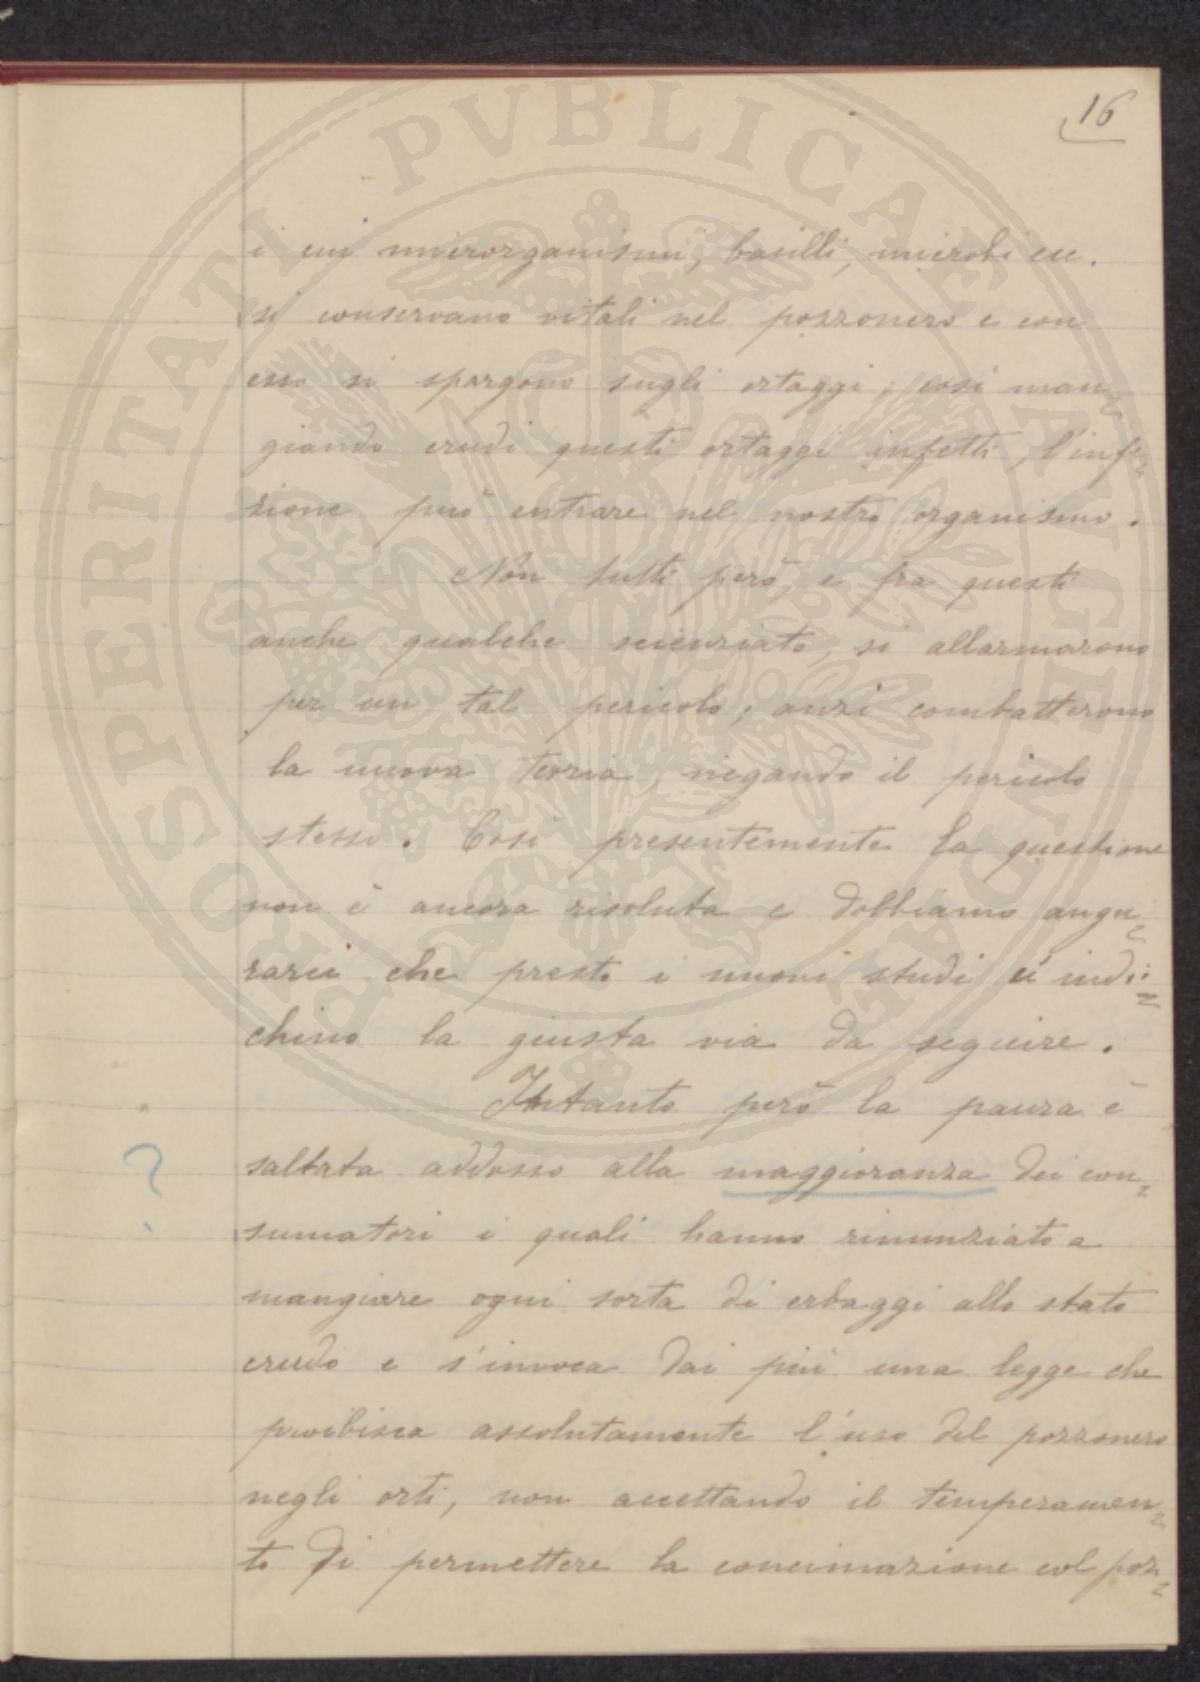 16
i cui microrganismi, bacilli, microbi ecc.
si conservano vitali nel pozzonero e con
esso si spargono sugli ortaggi; così man=
giando crudi questi ortaggi infetti, l'infe=
zione può entrare nel nostro organismo.
Non tutti però, e fra questi
anche qualche scienziato, si allarmarono
per un tal pericolo; anzi combatterono
la nuova teoria, negando il pericolo
stesso. Così presentemente la questione
non è ancora risoluta e dobbiamo augu=
rarci che presto i nuovi studi ci indi=
chino la giusta via da seguire.
Intanto però la paura è
? saltata addosso alla maggioranza dei con=
sumatori i quali hanno rinunziato a
mangiare ogni sorta di erbaggi allo stato
crudo e s'invoca dai più una legge che
proibisca assolutamente l'uso del pozzonero
negli orti, non accettando il temperamen=
to di permettere la concimazione col poz=
PROSPERITATI PVBLICAE AVGENDAE